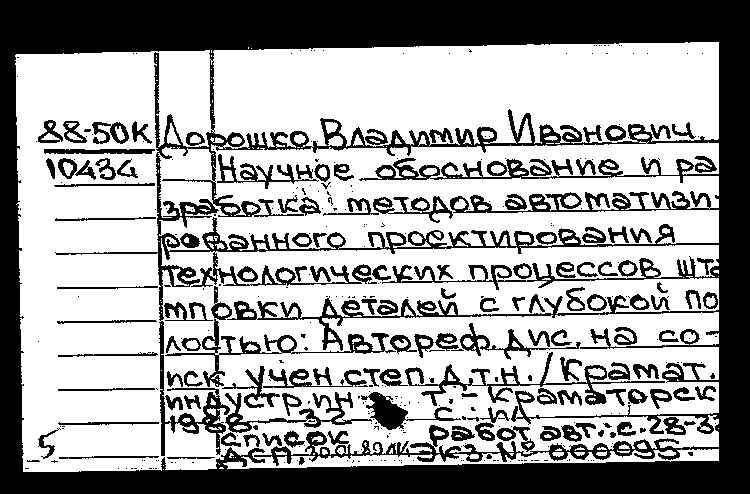 88-50К Дорошко, Владимир Иванович.
10434 Научное обоснование и ра
зработка методов автоматизи-
рованного проектирования
технологических процессов шта
мповки деталей с глубокой по
лостью: Автореф. дис. на со-
иск. учен. степ. д.т.н. / Крамат.
индустр. ин т. - Краматорск
1988. - 32 с.: ил.
список работ авт.: с. 28-32
5 ДСП. Экз. № 000095.